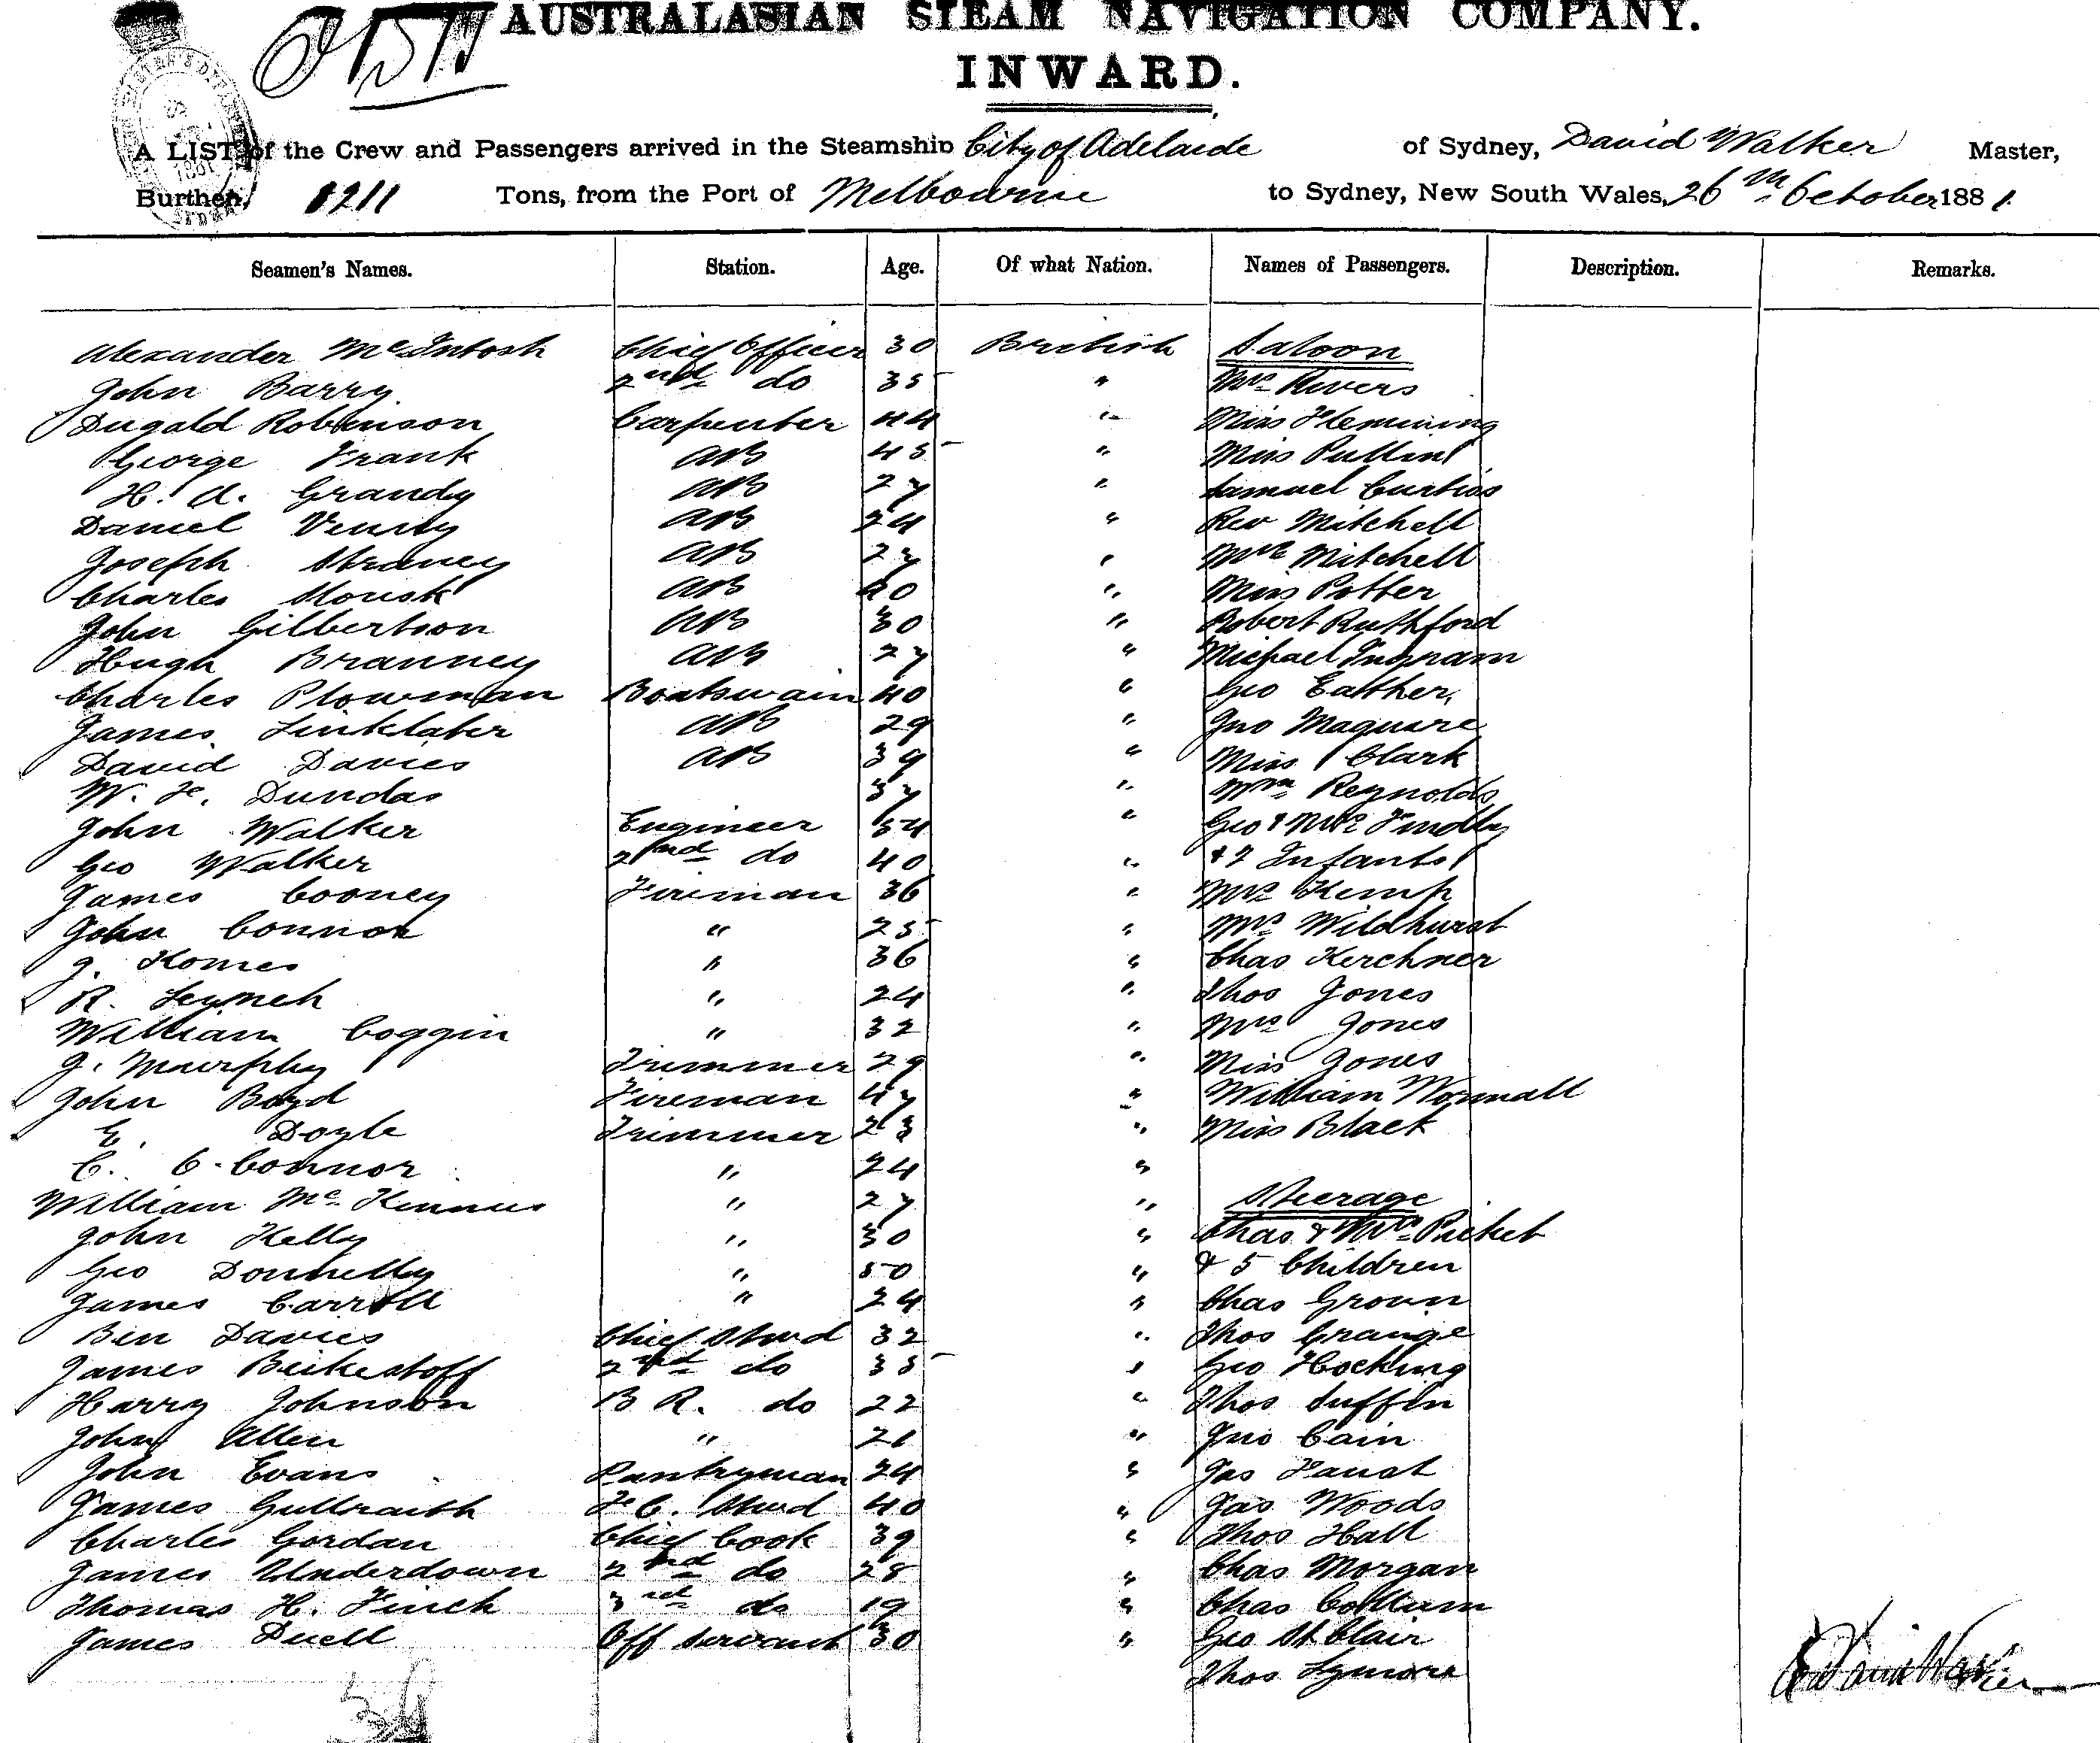 AUSTRALASIAN STEAM NAVIGATION COMPANY.
INWARD.
A LIST of the Crew and Passengers arrived in the Steamship City of Adelaide of Sydney, David Walker Master,
Burthen, 1211 Tons, from the Port of Melbourne to Sydney, New South Wales, 26th October 1881.
Seamen's Names. Station. Age. Of what Nation. Names of Passengers. Description. Remarks.
Alexander McIntosh Chief Officer 30 British Saloon
John Barry 2nd do 35 " Mrs Rivers
Dugald Robinson Carpenter 44 " Miss Fleming
George Frank AB 45 " Miss Pullin
H. A. Grandy AB 27 " Samuel Curtiss
Daniel AB 24 " Rev Mitchell
Joseph AB 27 " Mrs Mitchell
Charles AB " Miss Potter
John Gilbertson AB 30 " Robert Ruthford
Hugh Branney AB 27 " Michael Ingram
Charles Plowman Boatswain 40 " Geo Eather
James Linklater AB 29 " Jno Maguire
David Davies AB 39 " Miss Clark
W. H. Dundas 37 " Wm Reynolds
John Walker Engineer 34 " Geo & Mrs Findlay
Geo Walker 2nd do 40 " & 2 Infants
James Cooney Fireman 36 " Mrs Kemp
John Connor " 25 " Mrs Wildhurst
J. Homes " 36 " Chas Kerchner
R. Lynch " 24 " Thos Jones
William Coggin " 32 " Mrs Jones
J. Murphy Trimmer 29 " Miss Jones
John Boyd Fireman 47 " William Wormall
E. Doyle Trimmer 23 " Miss Black
C. O'Connor " 24 "
William Mc " 27 " Steerage
John Kelly " 30 " Chas & Mrs Picket
Geo Donnelly " 50 " & 5 Children
James Carroll " 24 " Chas Groun
Ben Davies Chief Stwd 32 " Thos Grange
James 2nd do 35 " Geo Hocking
Harry Johnson B R. do 22 " Thos Suffin
John Allen " 21 " Jno Cain
John Evans Pantryman 24 " Jas Faust
James F. C. Stwd 40 " Jas Woods
Charles Gordan Chief Cook 39 " Thos Hall
James Underdown 2nd do 28 " Chas Morgan
Thomas H. Finch 3rd do 19 " Chas
James Duell Off Servant 30 " Geo St Clair
Thos